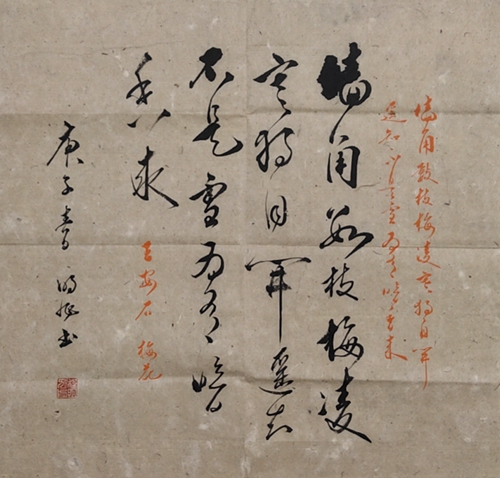 墙角数枝梅凌寒独自开
遥知不是雪为有暗香来
墙角数枝梅凌
寒独自开遥知
不是雪为有暗
香来
王安石 梅花
庚子春明书